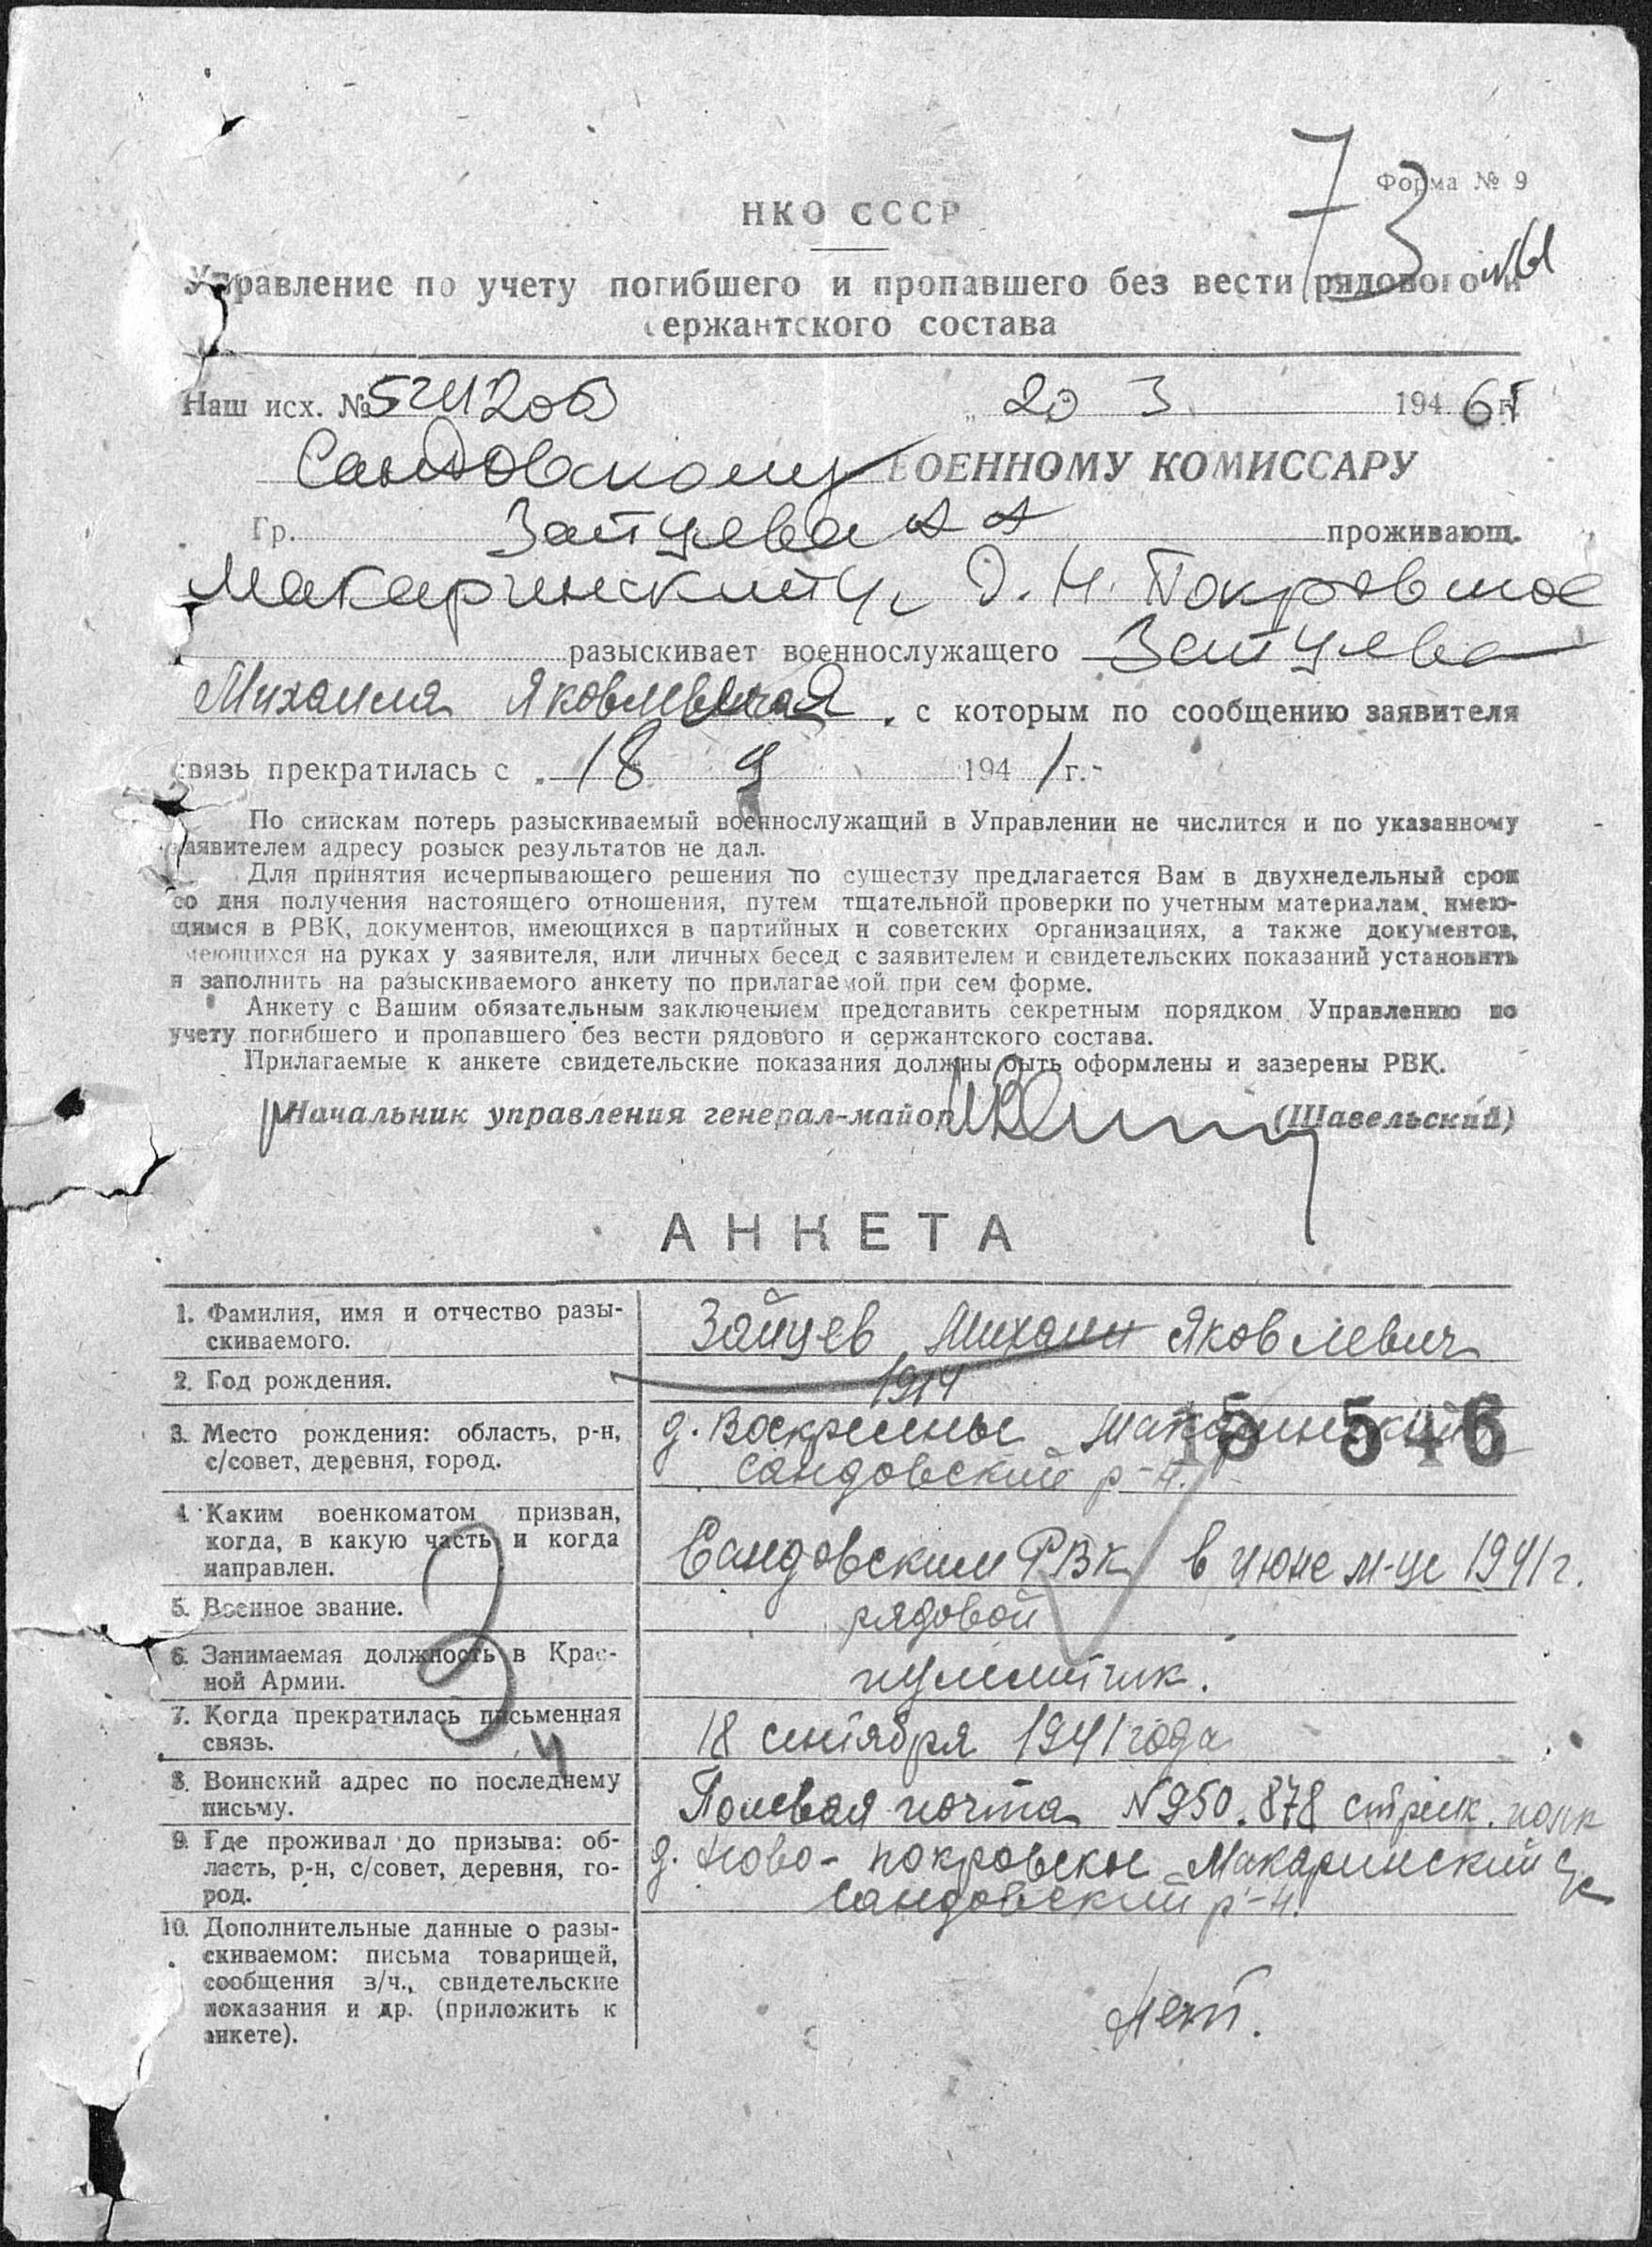 73
Форма № 9
НКО СССР
Управление по учету погибшего и пропавшего без вести рядового и
сержантского состава
Наш исх. № 20 3 1946 г.
Сандовскому ВОЕННОМУ КОМИССАРУ
Гр. Зайцева А А проживающ.
Макаринский с, д. Н. Покровское
разыскивает военнослужащего Зайцева
Михаила Яковлевича, с которым по сообщению заявителя
связь прекратилась с 18 9 1941 г.-
По спискам потерь разыскиваемый военнослужащий в Управлении не числится и по указанному
заявителем адресу розыск результатов не дал.
Для принятия исчерпывающего решения по существу предлагается Вам в двухнедельный срок
со дня получения настоящего отношения, путем тщательной проверки по учетным материалам, имею-
щимся в РВК, документов, имеющихся в партийных и советских организациях, а также документов,
имеющихся на руках у заявителя, или личных бесед с заявителем и свидетельских показаний установить
и заполнить на разыскиваемого анкету по прилагаемой при сем форме.
Анкету с Вашим обязательным заключением представить секретным порядком Управлению по
учету погибшего и пропавшего без вести рядового и сержантского состава.
Прилагаемые к анкете свидетельские показания должны быть оформлены и заверены РВК.
Начальник управления генерал-майор (Шавельский)
АНКЕТА
1. Фамилия, имя и отчество разы-
скиваемого.
Зайцев Михаил Яковлевич
2. Год рождения.
1914
3. Место рождения: область, р-н,
с/совет, деревня, город.
д. Воскресенье Макаринский
Сандовский р-н.
15 546
4. Каким военкоматом призван,
когда, в какую часть и когда
направлен.
Сандовским РВК в июне м-це 1941 г.
5. Военное звание.
рядовой
6. Занимаемая должность в Крас-
ной Армии.
пулеметчик.
7. Когда прекратилась письменная
связь.
18 сентября 1941 года
8. Воинский адрес по последнему
письму.
Полевая почта №950. 878 стрелк. полк
9. Где проживал до призыва: об-
ласть, р-н, с/совет, деревня, го-
род.
д. Ново-Покровское Макаринский с/с
Сандовский р-н.
10. Дополнительные данные о разы-
скиваемом: письма товарищей,
сообщения з/ч., свидетельские
показания и др. (приложить к
анкете).
Нет.